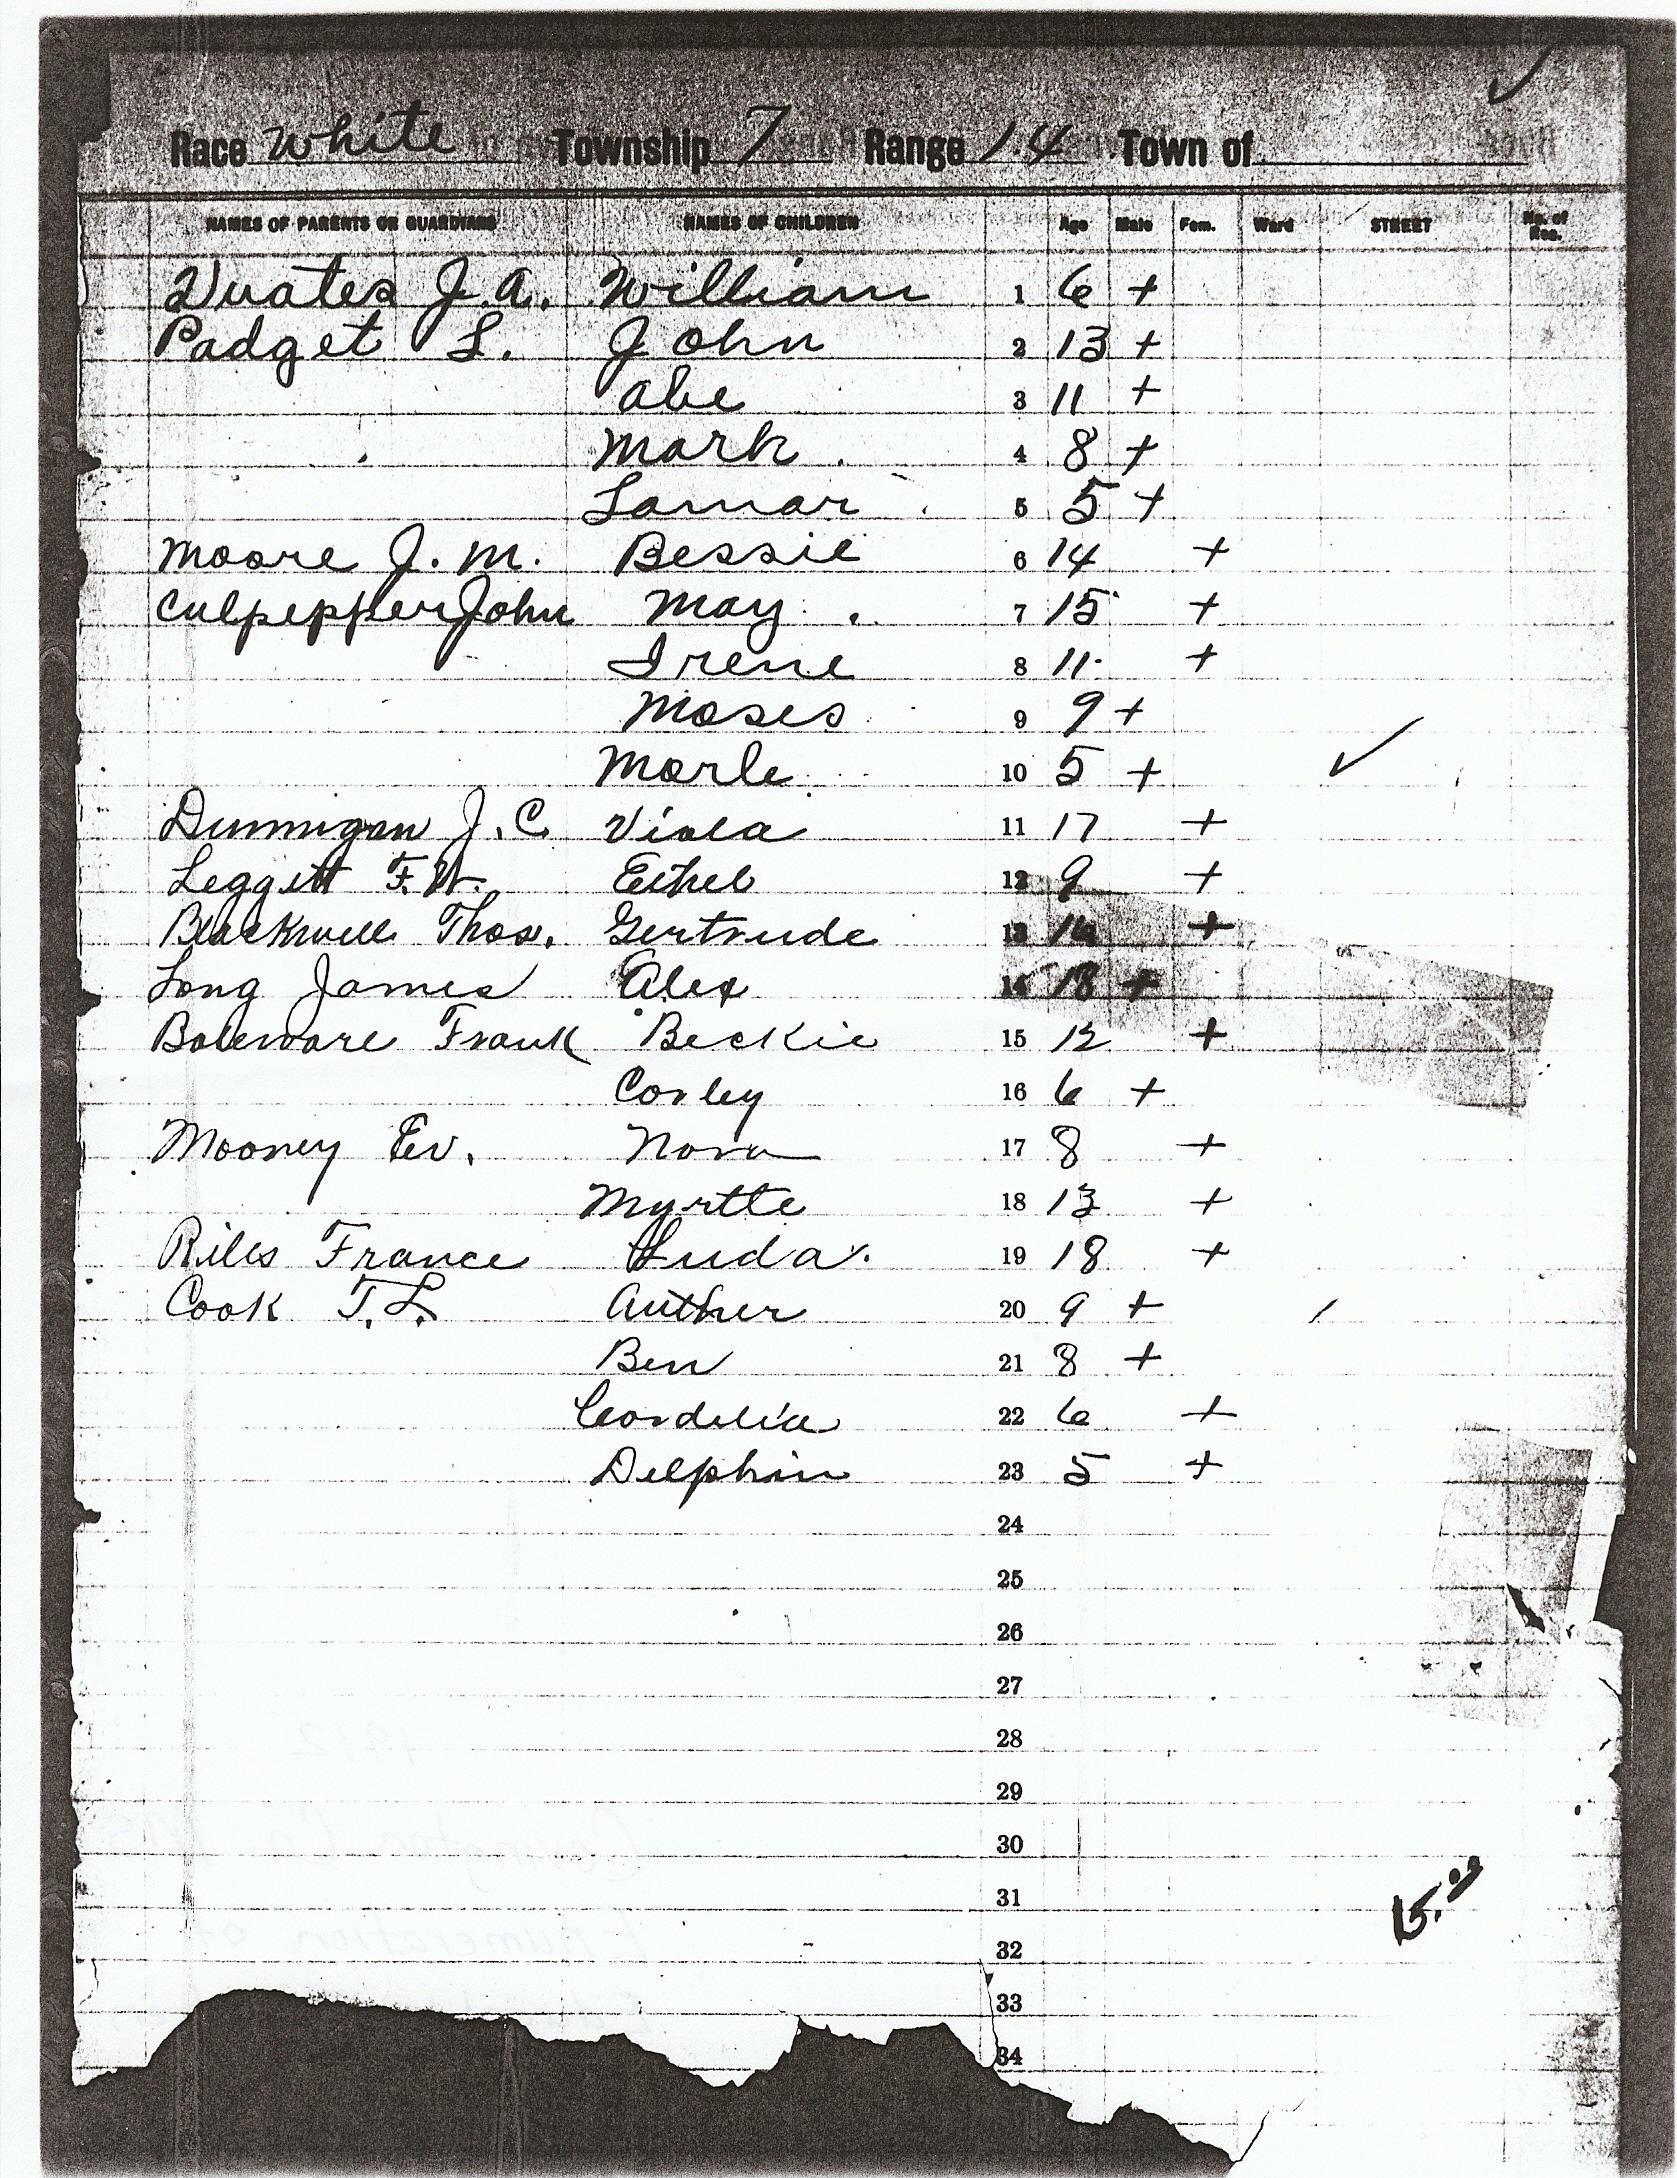 Race White Township 7 Range 14 Town of
NAMES OF PARENTS OR GUARDIANS NAMES OF CHILDREN Age Male Fem. Ward STREET No. of Res.
J.A. William 1 6 +
Padget L. John 2 13 +
Abe 3 11 +
Mark 4 8 +
Lamar 5 5 +
Moore J. M. Bessie 6 14 +
Culpepper John May 7 15 +
Irene 8 11 +
Moses 9 9 +
Marle 10 5 +
Dunnigan J. C. Viola 11 17 +
Leggett F. W. Ethel 12 9 +
Blackwell Thos. Gertrude 13 +
Long James Alex 14 18 +
Boleware Frank Beckie 15 12 +
Corley 16 6 +
Mooney Ev. Nora 17 8 +
Myrtte 18 13 +
Rills France Luda 19 18 +
Cook T. L. Auther 20 9 +
Ben 21 8 +
Cordelia 22 6 +
Delphin 23 5 +
24
25
26
27
28
29
30
31
15.00
32
33
34